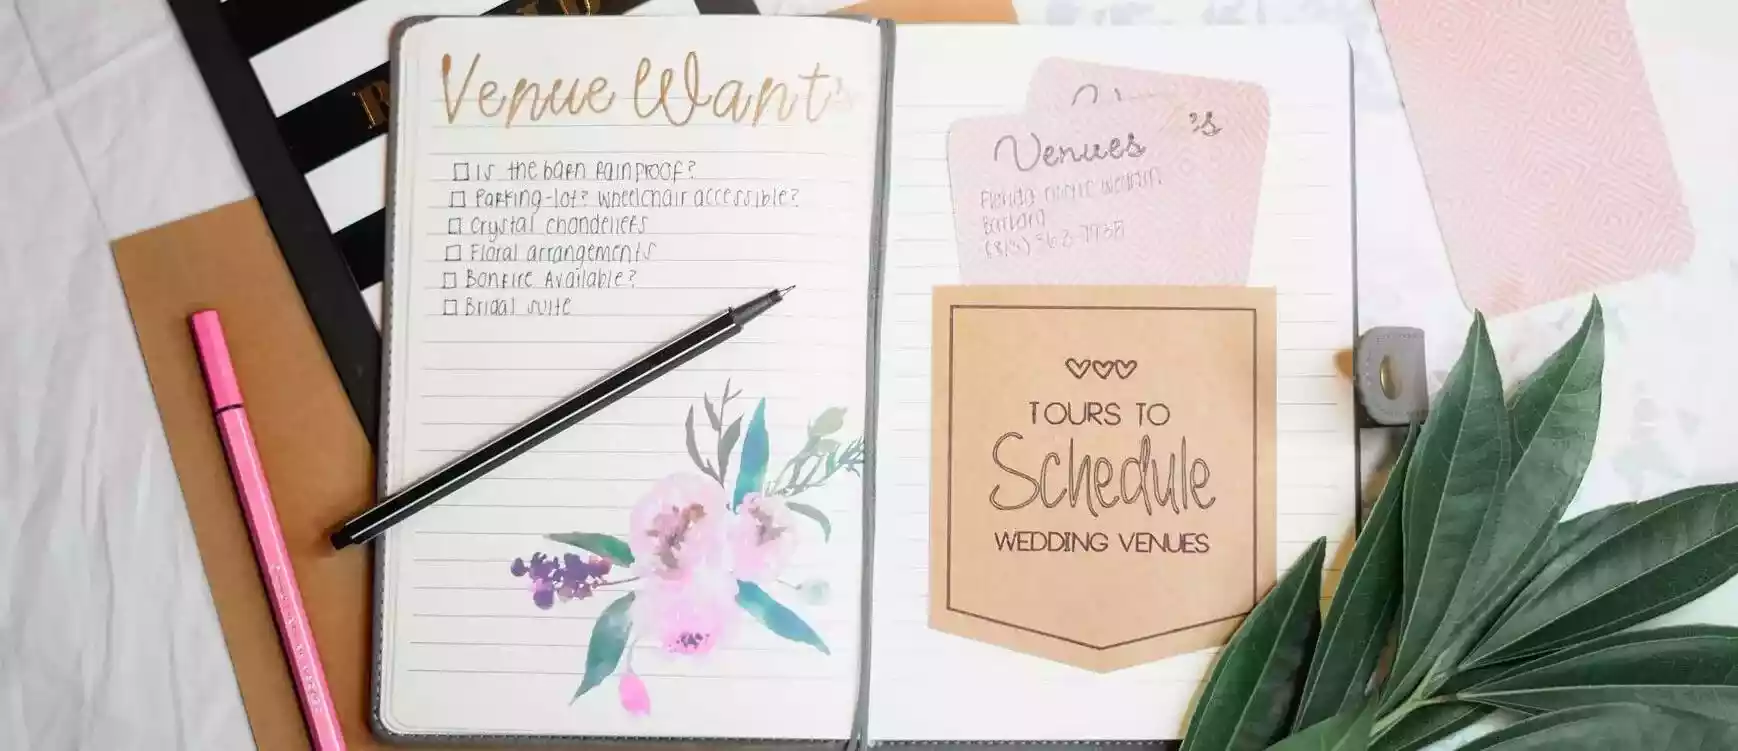 Venue Want's
□ Is the barn rainproof?
□ Parking-lot? wheelchair accessible?
□ Crystal chandeliers
□ Floral arrangements
□ Bonfire Available?
□ Bridal suite
Venues 's
Florida
Barbara
TOURS TO
Schedule
WEDDING VENUES